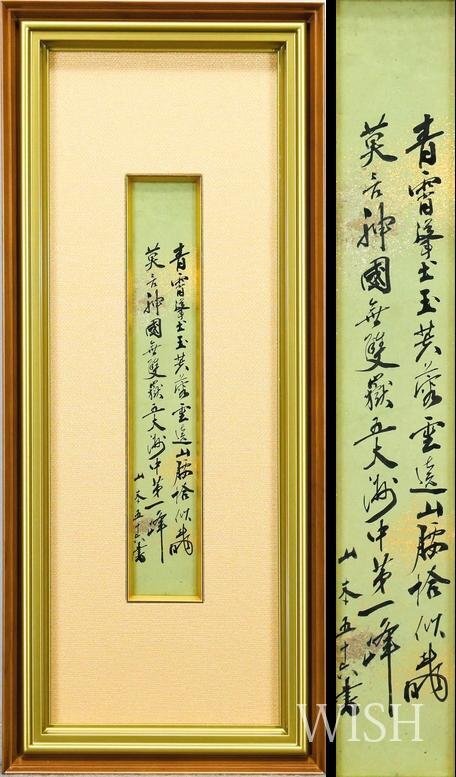 青霄擎出玉芙蓉雲遶山腰恰似
莫言神國無雙嶽五大洲中第一峰
山本五十六書
青霄擎出玉芙蓉雲遶山腰恰似
莫言神國無雙嶽五大洲中第一峰
山本五十六書
WISH